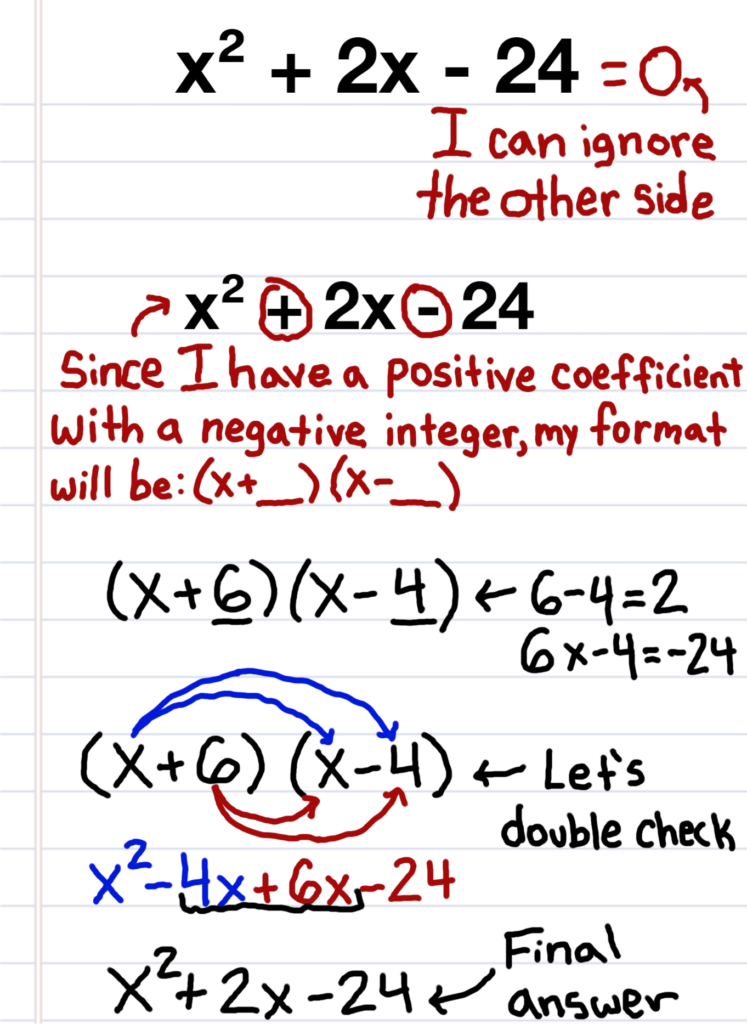 x² + 2x - 24 = 0
I can ignore
the other side
x² + 2x - 24
Since I have a positive coefficient
with a negative integer, my format
will be: (x+__)(x-__)
(x+6)(x-4) ← 6-4=2
6x-4=-24
(x+6) (x-4) ← Let's
double check
x²-4x+6x-24
x²+2x-24 ← Final
answer